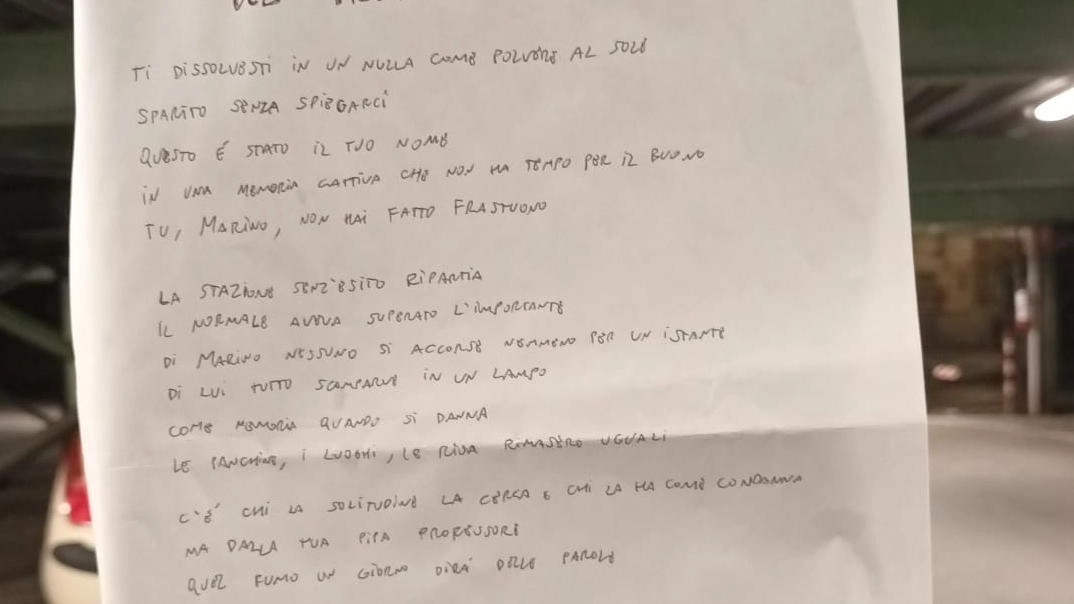 DEL
TI DISSOLVESTI IN UN NULLA COME POLVERE AL SOLE
SPARITO SENZA SPIEGARCI
QUESTO É STATO IL TUO NOME
IN UNA MEMORIA CATTIVA CHE NON HA TEMPO PER IL BUONO
TU, MARINO, NON HAI FATTO FRASTUONO
LA STAZIONE SENZ'ESITO RIPARTIA
IL NORMALE AVEVA SUPERATO L'IMPORTANTE
DI MARINO NESSUNO SI ACCORSE NEMMENO PER UN ISTANTE
DI LUI TUTTO SCOMPARVE IN UN LAMPO
COME MEMORIA QUANDO SI DANNA
LE PANCHINE, I LUOGHI, LE RIVA RIMASERO UGUALI
C'É CHI LA SOLITUDINE LA CERCA E CHI LA HA COME CONDANNA
MA DALLA TUA PIPA PROFESSORE
QUEL FUMO UN GIORNO DIRÁ DELLE PAROLE